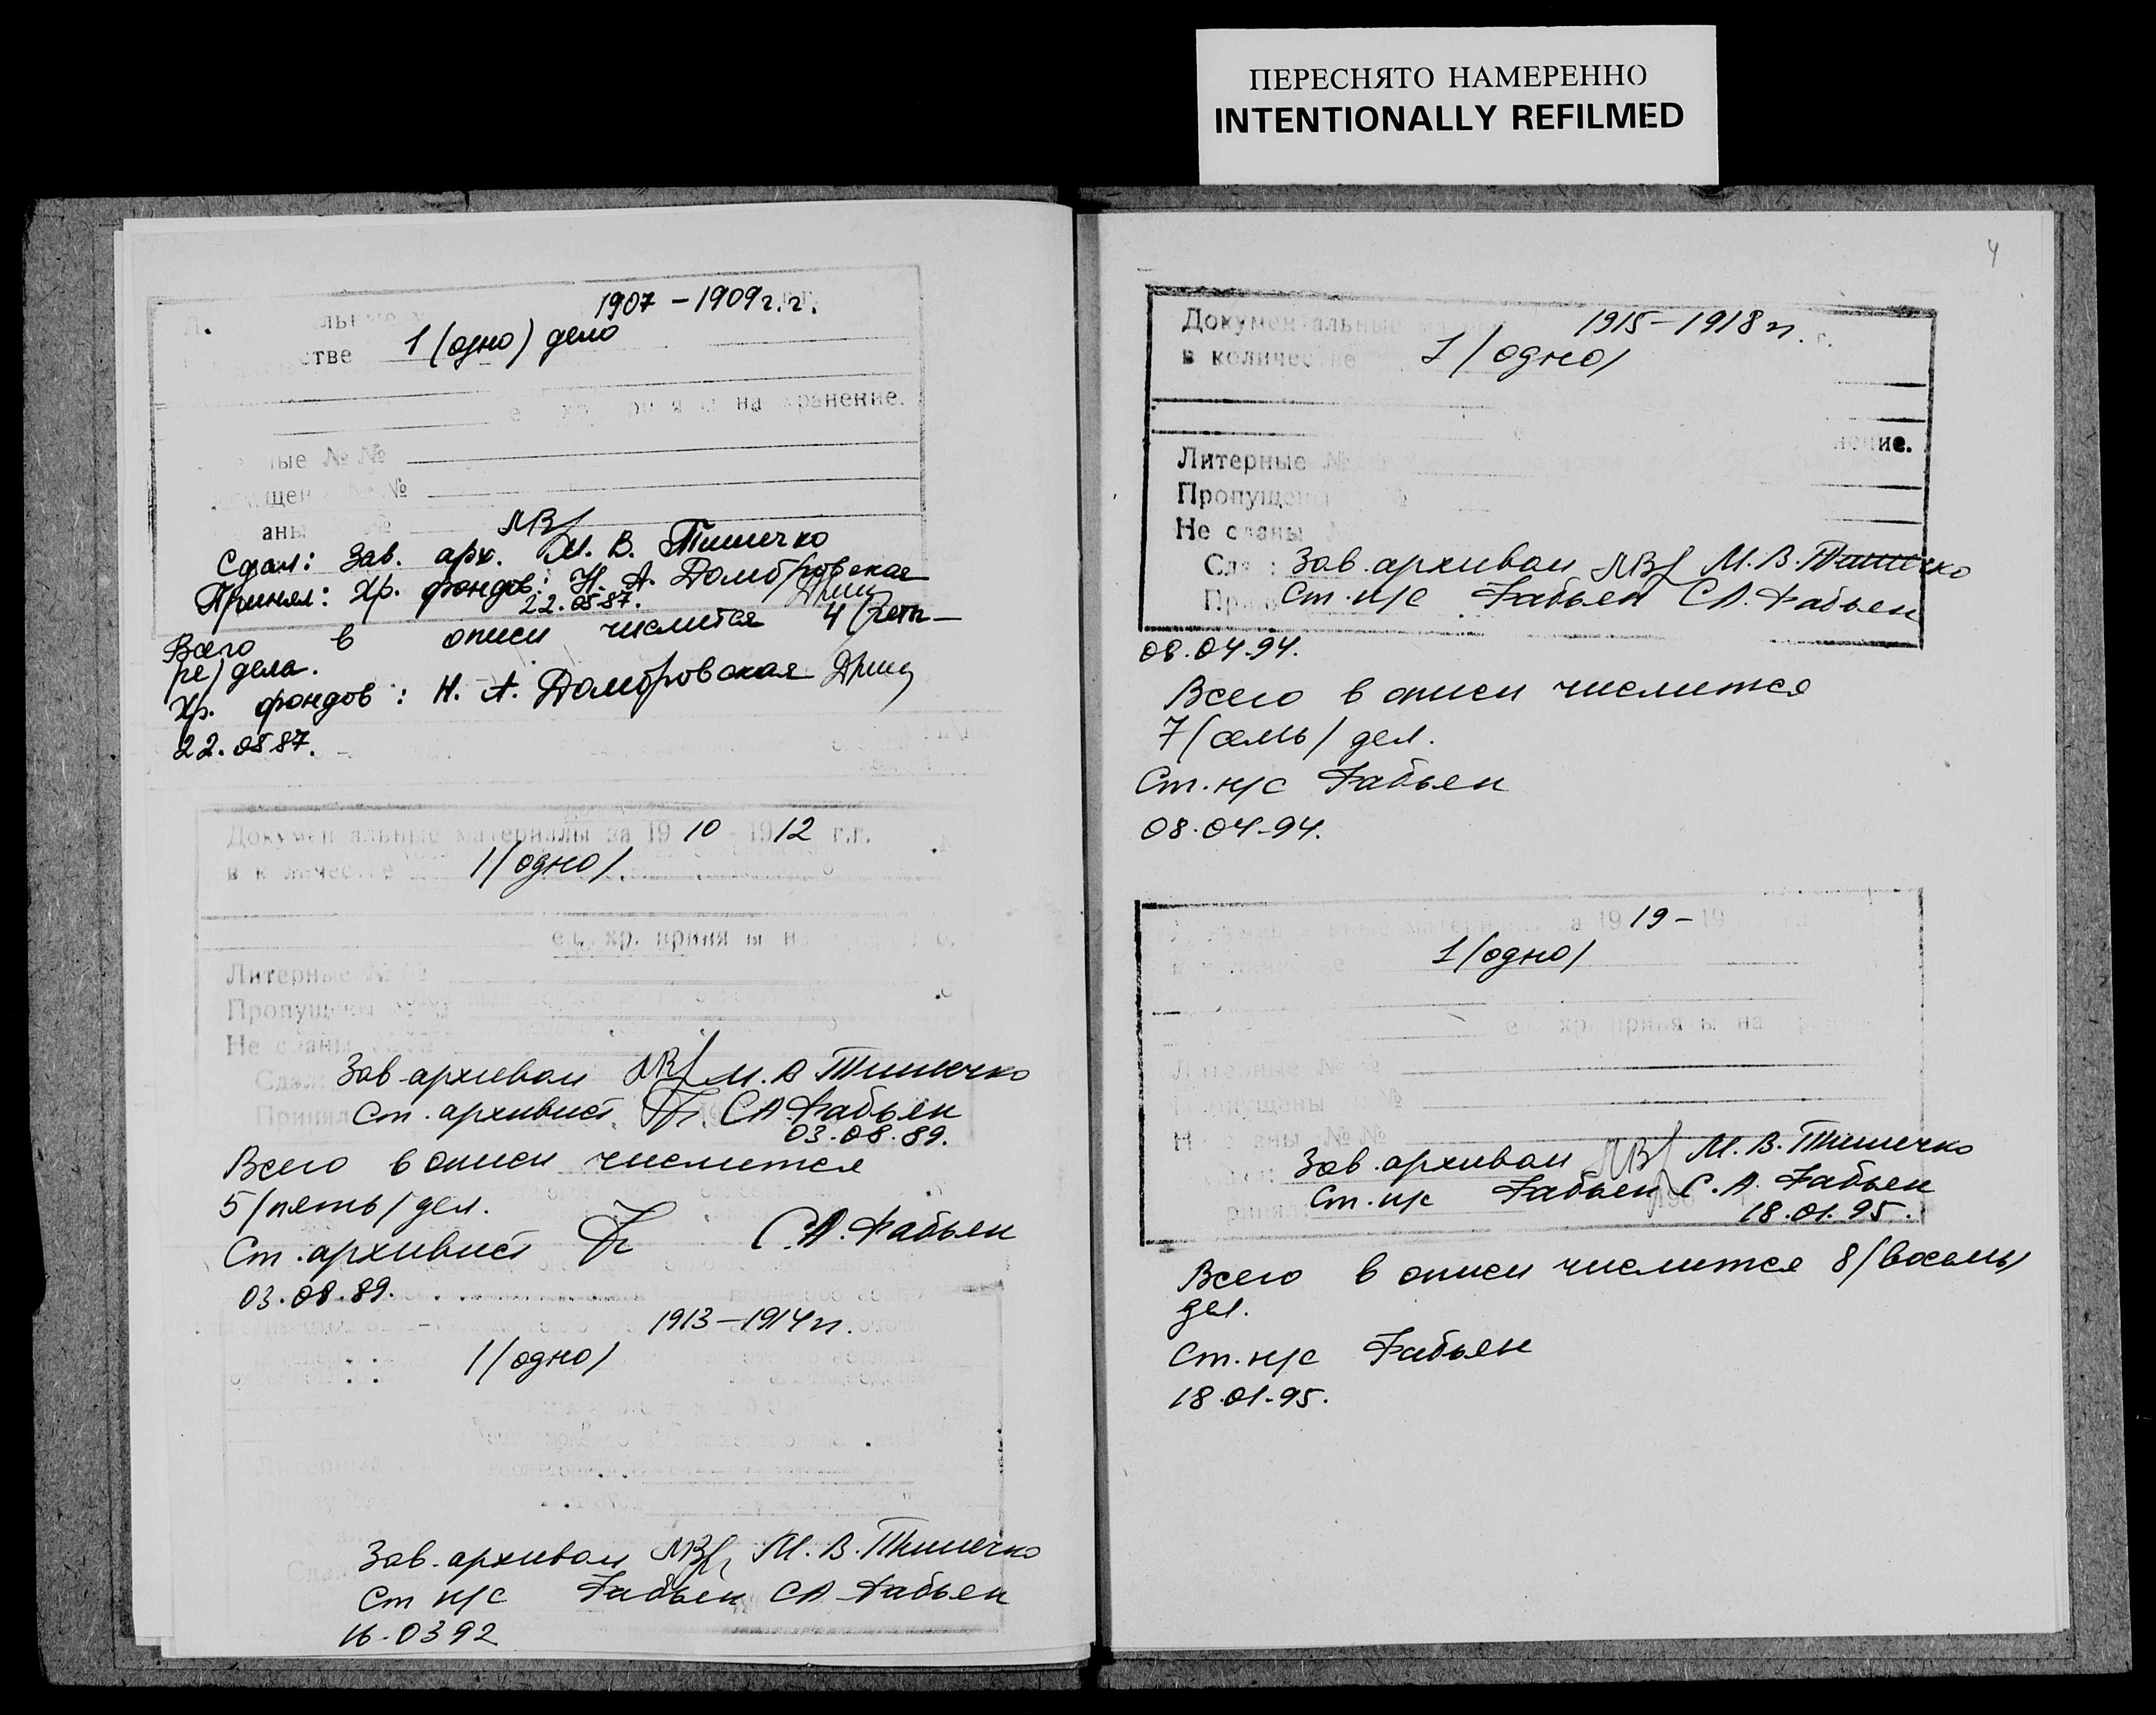 ПЕРЕСНЯТО НАМЕРЕННО
INTENTIONALLY REFILMED
1907 – 1909 г.г.
1 (одно) дело
на хранение.
№ №
Сдал: Зав. арх. М. В. Тимечко
Принял: Хр. фондов: Н. А. Домбровская
22.05.87.
Всего в описи числится 4 (четы-
ре) дела.
Хр. фондов: Н. А. Домбровская
22.05.87.
Документальные материалы за 1910 - 1912 г.г.
в количестве 1 (одно)
ед. хр. приняты на
Литерные № №
Пропущены
Не сданы
Зав. архивом М. В. Тимечко
Принял Ст. архивист С. А. Фабьен
03.08.89.
Всего в описи числится
5 (пять) дел.
Ст. архивист С. А. Фабьен
03.08.89.
1913 – 1914 гг.
1 (одно)
Зав. архивом М. В. Тимечко
Ст н/с Фабьен С А Фабьен
16.03 92
4
Документальные 1915 – 1918 гг.
в количестве 1 (одно)
Литерные №
Пропущены №
Не сданы
Сдал: Зав. архивом М. В. Тимечко
Ст. н/с Фабьен С А. Фабьен
08.04.94.
Всего в описи числится
7 (семь) дел.
Ст. н/с Фабьен
08.04.94.
материалы за 1919 – 19
1 (одно)
ед. хр. приняты на
Литерные № №
Пропущены №
Не сданы № №
Зав. архивом М. В. Тимечко
Ст. н/с Фабьен С. А. Фабьен
18.01.95.
Всего в описи числится 8 (восемь)
дел.
Ст. н/с Фабьен
18.01.95.